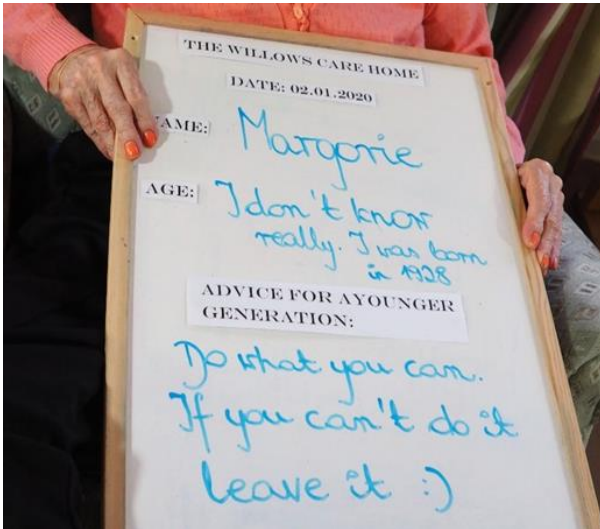 THE WILLOWS CARE HOME
DATE: 02.01.2020
NAME: Margorie
AGE: I don't know
really. I was born
in 1928
ADVICE FOR AYOUNGER
GENERATION:
Do what you can.
If you can't do it
leave it :)